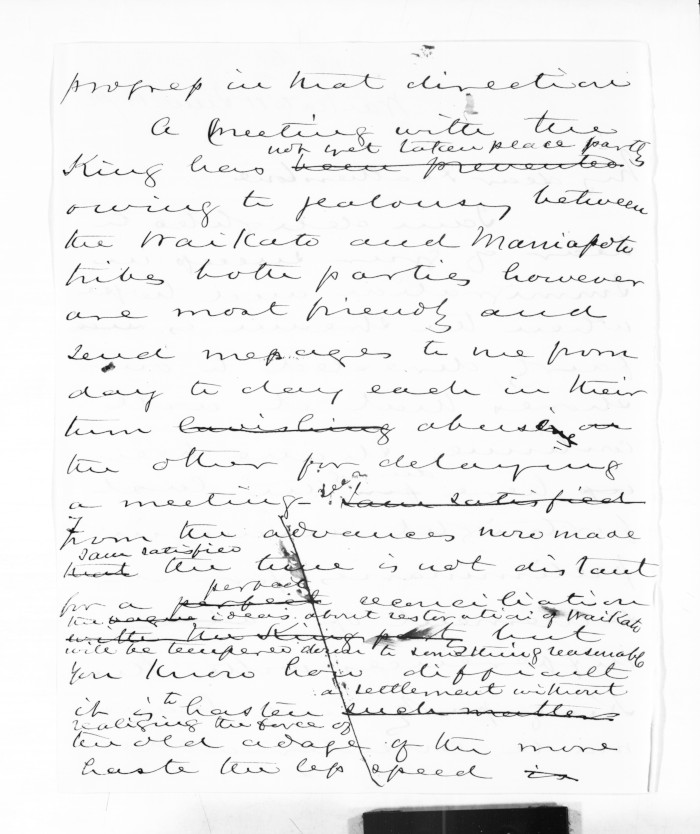 progress in that direction
A meeting with the
not yet taken place partly
King has been prevented
owing to jealousy between
the Waikato and Maniapoto
tribes both parties however
are most friendly and
send messages to me from
day to day each in their
turn lavishing abusing on
the other for delaying
a meeting I am satisfied
From the advances now made
I am satisfied
that the time is not distant
perfect
for a perfect reconciliation
the vague ideas about restoration of Waikato
with the King party but
will be tempered down to something reasonable
You know how difficult
a settlement without
it is to hasten such matters
realising the force of
the old adage of the more
haste the less speed is